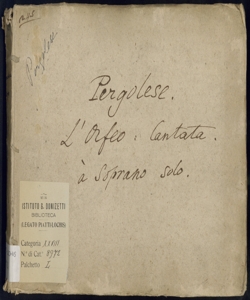 Pergolese
Pergolese.
L'Orfeo: Cantata.
à Soprano solo.
ISTITUTO G. DONIZETTI
BIBLIOTECA
(LEGATO PIATTI-LOCHIS)
Categoria XXVIII
N.° di Cat.°
Palchetto